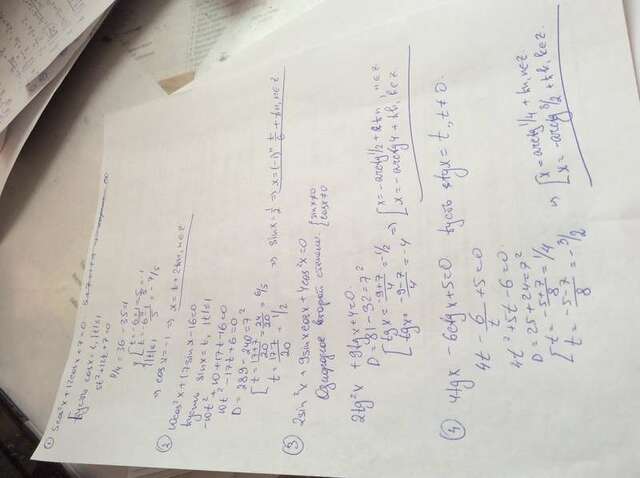 ① 5cos²x+12cosx+7=0
Пусть cosx=t, |t|≤1
5t²+12t+7=0
D/4 = 36-35=1
⇒ cosx=-1 ⇒ x=π+2πn, n∈Z
② 10cos²x+17sinx-16=0
Пусть sinx=t, |t|≤1
-10t²+10+17t-16=0
10t²-17t+6=0
D=289-240=7²
[t=(17+7)/20=24/20=6/5
t=(17-7)/20=1/2 ⇒ sinx=1/2 ⇒ x=(-1)ⁿ π/6+πn, n∈Z
③ 2sin²x+9sinxcosx+4cos²x=0
Однородное второй степени. {sinx≠0
cosx≠0
2tg²x+9tgx+4=0
D=81-32=7²
[tgx=(-9+7)/4=-1/2
tgx=(-9-7)/4=-4 ⇒ [x=-arctg1/2+πn, n∈Z
x=-arctg4+πk, k∈Z
④ 4tgx-6ctgx+5=0 Пусть tgx=t, t≠0.
4t-6/t+5=0
4t²+5t-6=0
D=25+24=7²
[t=(-5+7)/8=1/4
t=(-5-7)/8=-3/2 ⇒ [x=arctg1/4+πn, n∈Z
x=-arctg3/2+πk, k∈Z